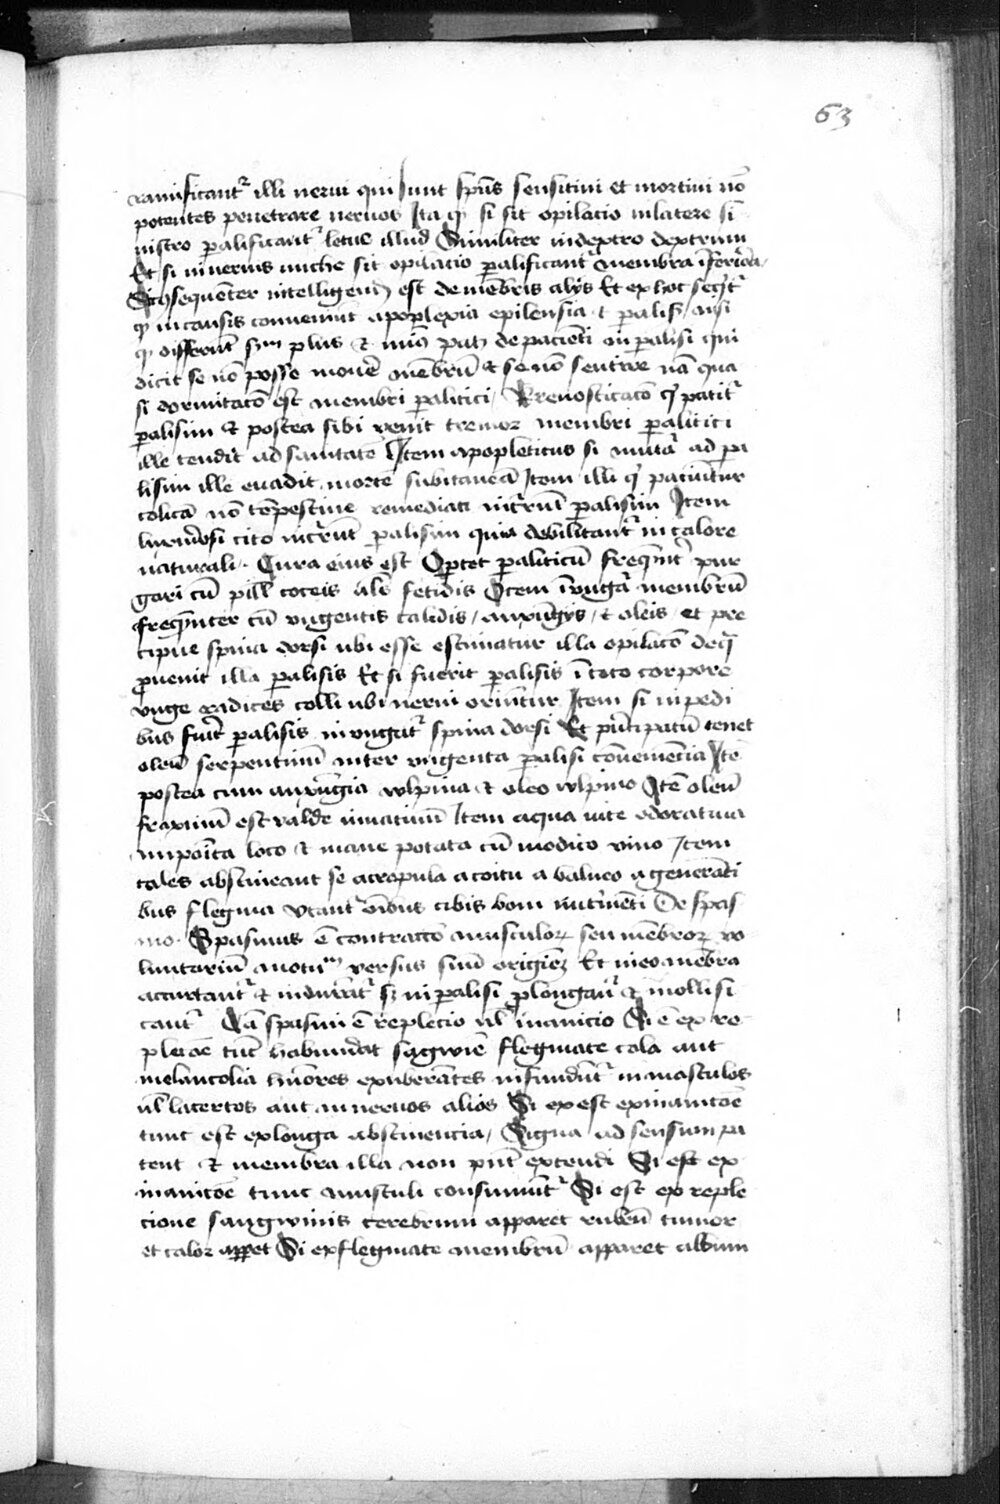 63
ramificantr illi nerui qui sunt spūs sensitiui et mortiui nō
potentes penetrare neruos Ita ꝙ si sit opilacio in latere si
nistro ꝑalisicantr latus illud Similiter in dextro dextrum
Et si in neruis nuche sit opilacio ꝑalisicantr membra īferiora
Et ꝯsequenter intelligendū est de mēbris alijs Et ex hoc seqitr
ꝙ in causis conueniūt apoplexia epilensia et ꝑalisis nisi
ꝙ differūt scdm plus et minus patz de pacienti in ꝑalisi qui
dicit se nō posse mouere membrū et se nō sentire nā qua
si dormitacō est membri ꝑalitici / Prenosticacō qui patitr
ꝑalisim et postea sibi venit tremor membri ꝑalitici
ille tendit ad sanitatē Item apopleticus si mutatr ad pa
lisim ille euadit mortē subitaneā Item illi qui paciūtur
colicā nō tēpestiue remediati incurrūt ꝑalisim Item
luxuriosi cito incurrūt ꝑalisim quia debilitantr in calore
naturali · Cura eius est Oportet ꝑaliticū frequentr pur
gari cū pill coceis ul fetidis Item īungatr membrū
frequēter cū vngentis calidis / auxungijs / et oleis / et pre
cipue spina dorsi ubi esse estimatur illa opilacō de qua
ꝓuenit illa ꝑalisis Et si fuerit ꝑalisis ī toto corpore
vnge radices colli ubi nerui oriūtur Item si in pedi
bus fuerit ꝑalisis inungatr spina dorsi Et principatū tenet
oleū serpentinū inter vngenta ꝑalisi cōueniencia Itē
postea cum auxūgia vulpina et oleo vulpino Itē oleū
fraxinū est valde iuuatiuū Item aqua vite odorativa
imposita loco et mane potata cū modico vino Item
tales abstineant se a crapula a coitu a balneo a generāti
bus flegma Vtantr oībus cibis boni nutrimēti De spas
mo · Spasmus ē contraccō musculorꝫ seu mēbrorꝫ vo
luntariū motum versus suū origiēm Et in eo mēbra
accurtantr et indurātr sꝫ in ꝑalisi ꝓlongātr et mollifi
cantr Cā spasmi ē replecio ul inanicio Si ē ex re
plecōe tūc habundāt sāgwinē flegmate cola aut
melancolia humores exuberātes infundūtr in musculos
ul lacertos aut in neruos alios Si ex est ex inanicōe
tunc est ex longa abstinencia / Signa ad sensum pa
tent et membra illa non pñt extendi Si est ex
inanicōe tunc musculi consumūtr Si est ex reple
cione sangwinis cerebrum apparet rubeū tumor
et calor apparet Si ex flegmate membrū apparet album